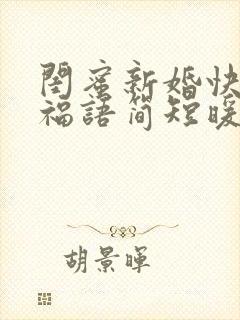 閨蜜新婚快
福語简短暖
胡景暉